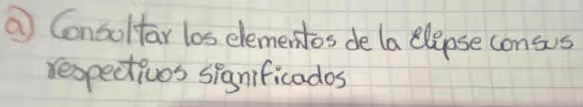 a) Consultar los elementos de la elipse con sus
respectivos significados